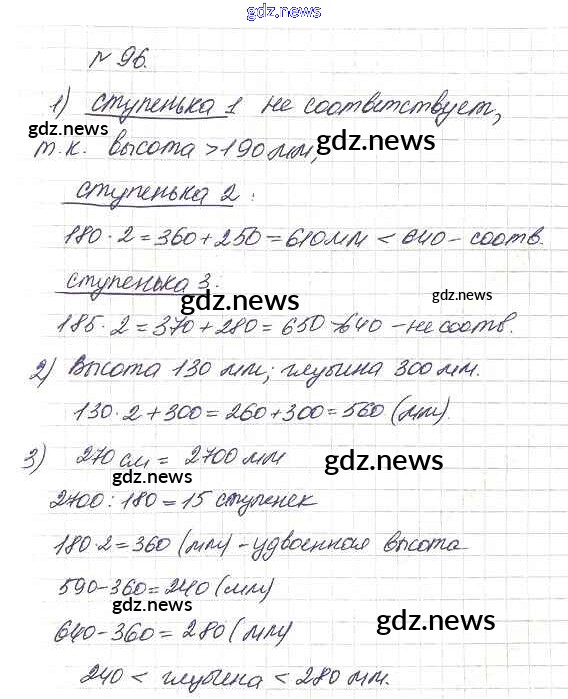 gdz.news
№ 96.
1) ступенька 1 не соответствует,
gdz.news
gdz.news
т.к. высота >190мм,
ступенька 2:
180·2=360+250=610мм < 640- соотв.
ступенька 3.
gdz.news
gdz.news
185·2=370+280=650>640 -не соотв.
2) Высота 130 мм; глубина 300 мм.
130·2+300=260+300=560 (мм).
3) 270 см = 2700 мм
gdz.news
gdz.news
2700:180=15 ступенек
180·2=360 (мм) -удвоенная высота
590-360=240 (мм)
gdz.news
gdz.news
640-360=280 (мм)
240 < глубина < 280 мм.
gdz.news